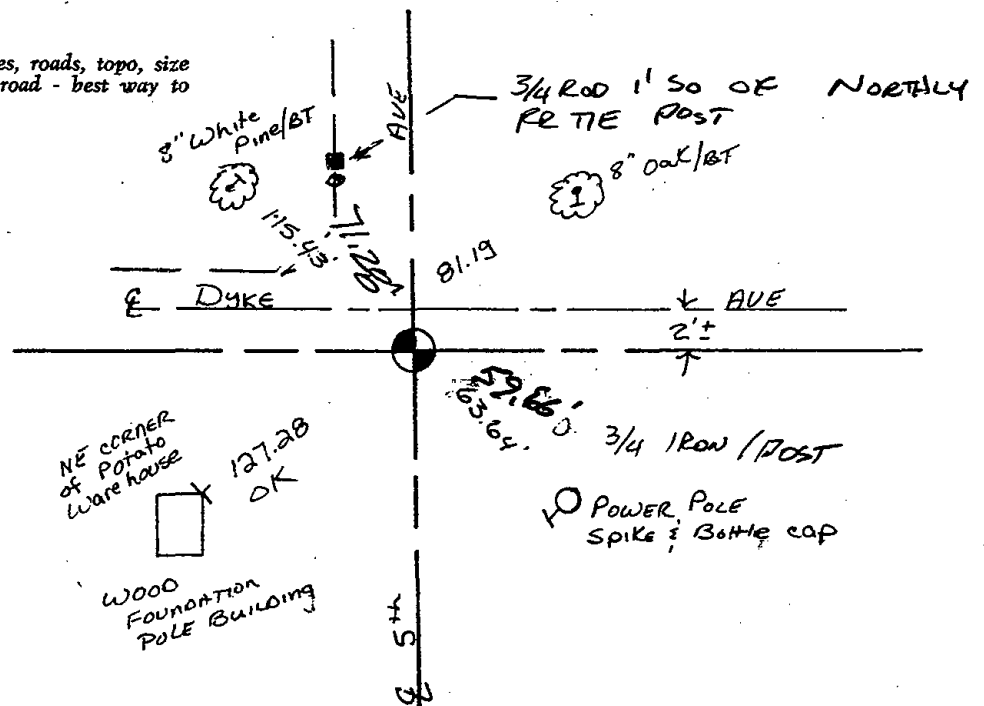 es, roads, topo, size
road - best way to
3/4 ROD 1' SO OF NORTHLY
RR TIE POST
AVE
8" White
Pine/BT
2
1
8" Oak/BT
115.43'
71.28'
81.19
℄ DYKE AVE
2'±
59.66'
63.64
3/4 IRON / POST
NE CORNER
of Potato
Warehouse
127.28
OK
POWER POLE
Spike & Bottle cap
WOOD
FOUNDATION
POLE BUILDING
℄ 5th